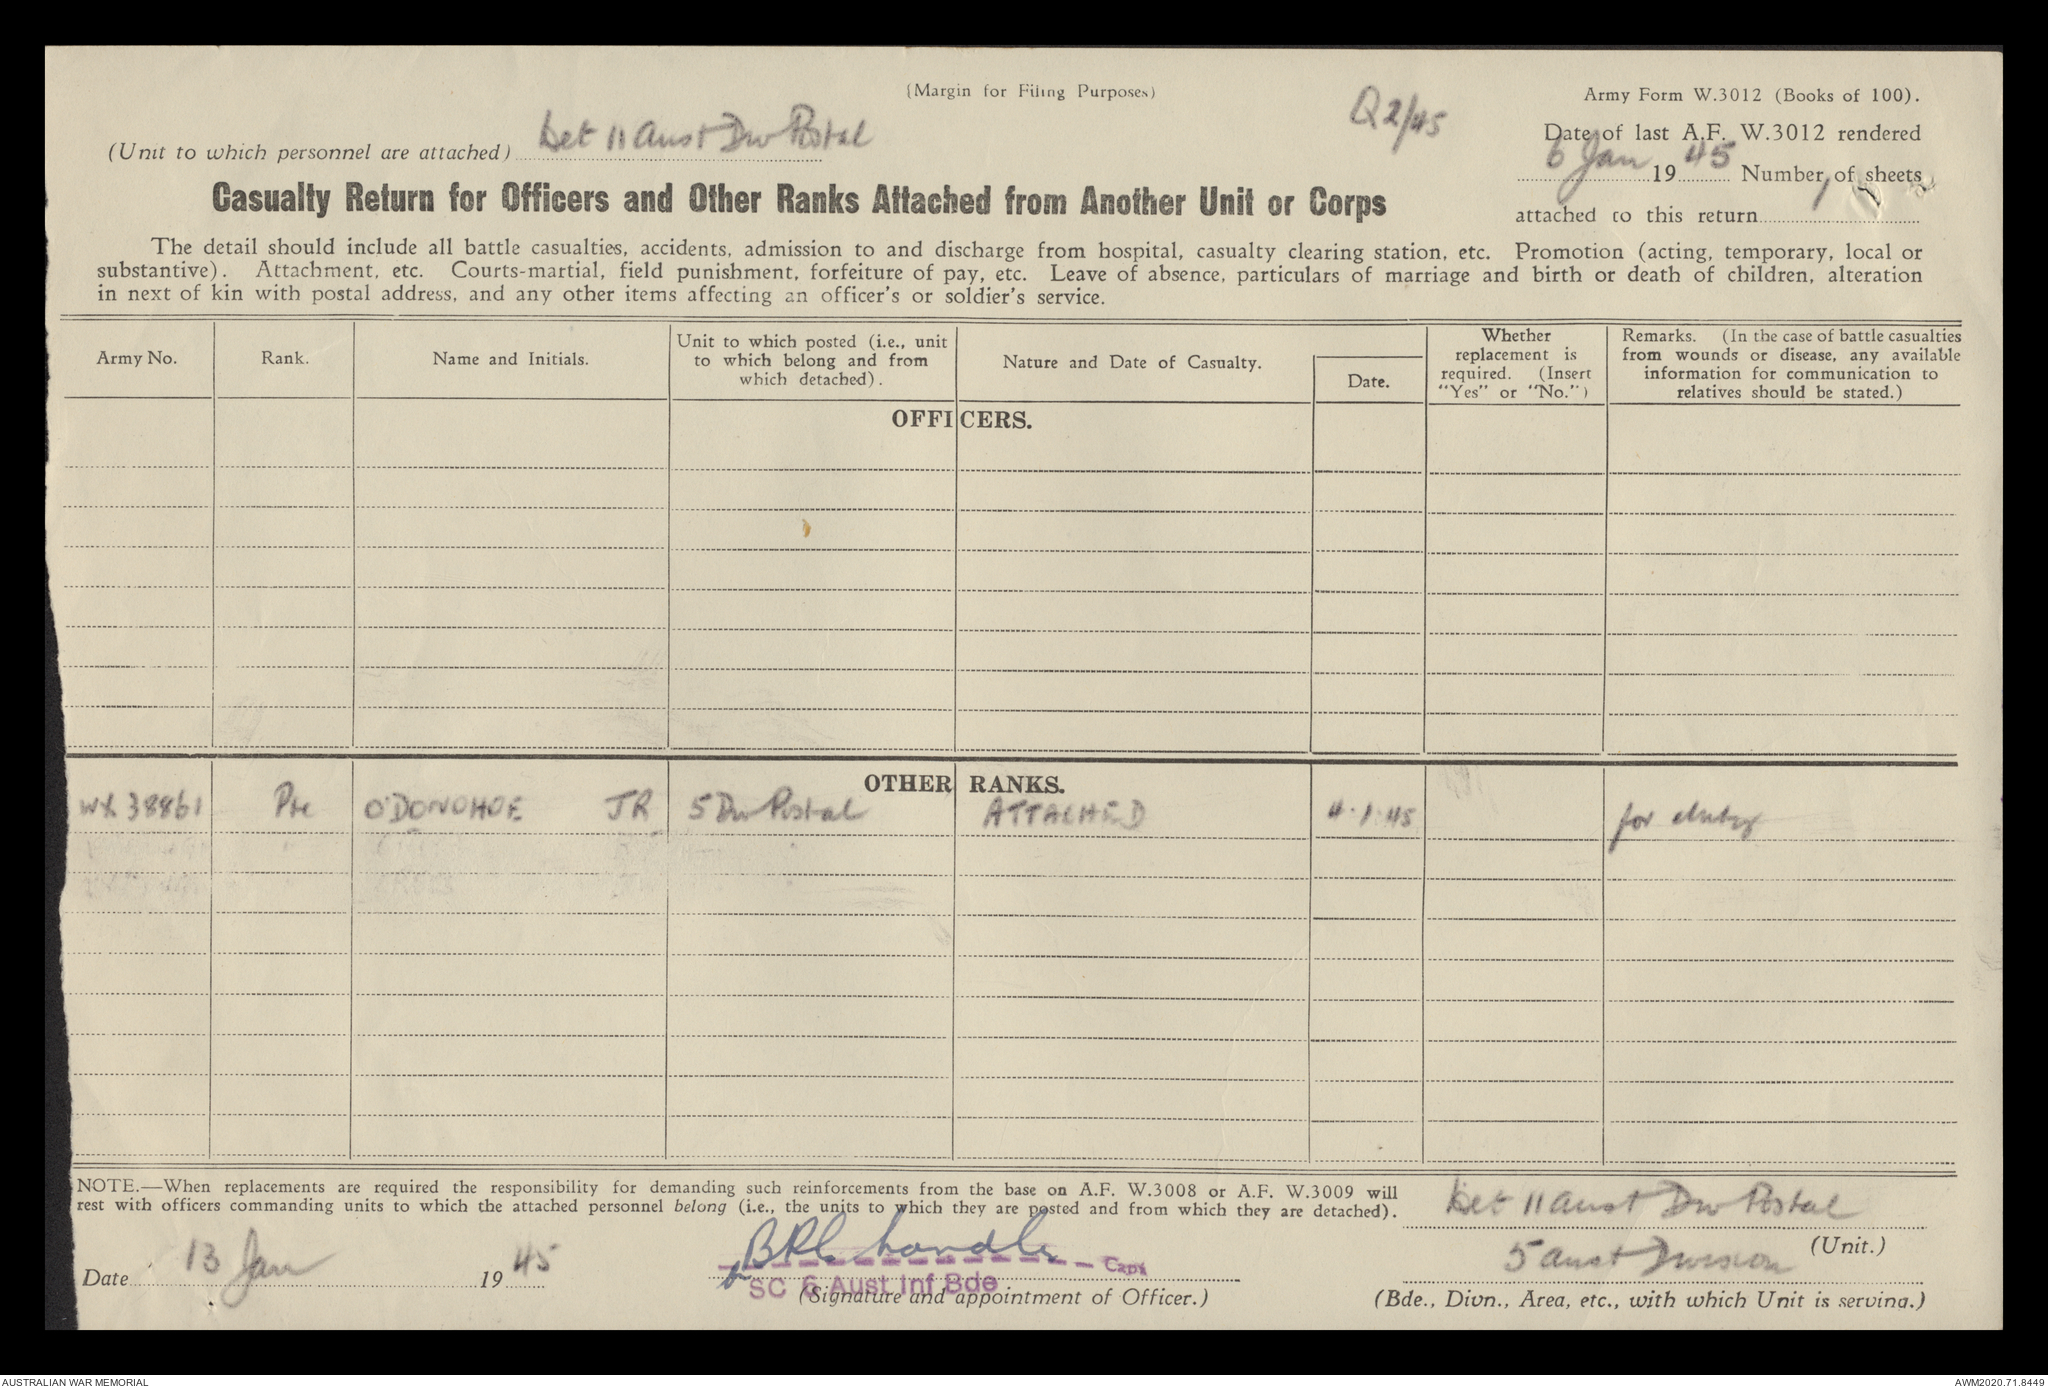 (Margin for Filing Purposes)
Q2/45
Army Form W.3012 (Books of 100).
(Unit to which personnel are attached) Det 11 Aust Div Postal
Date of last A.F. W.3012 rendered
6 Jan 1945 Number of sheets
attached to this return 1
Casualty Return for Officers and Other Ranks Attached from Another Unit or Corps
The detail should include all battle casualties, accidents, admission to and discharge from hospital, casualty clearing station, etc. Promotion (acting, temporary, local or
substantive). Attachment, etc. Courts-martial, field punishment, forfeiture of pay, etc. Leave of absence, particulars of marriage and birth or death of children, alteration
in next of kin with postal address, and any other items affecting an officer's or soldier's service.
Army No.
Rank.
Name and Initials.
Unit to which posted (i.e., unit
to which belong and from
which detached).
Nature and Date of Casualty.
Date.
Whether
replacement is
required. (Insert
"Yes" or "No.")
Remarks. (In the case of battle casualties
from wounds or disease, any available
information for communication to
relatives should be stated.)
OFFICERS.
OTHER RANKS.
WX 38861 Pte O'DONOHOE JR 5 Div Postal ATTACHED 4.1.45 for duty
NOTE.—When replacements are required the responsibility for demanding such reinforcements from the base on A.F. W.3008 or A.F. W.3009 will
rest with officers commanding units to which the attached personnel belong (i.e., the units to which they are posted and from which they are detached).
Det 11 Aust Div Postal
(Unit.)
Date 13 Jan 1945
Capt
SC 6 Aust Inf Bde
(Signature and appointment of Officer.)
5 Aust Division
(Bde., Divn., Area, etc., with which Unit is serving.)
AUSTRALIAN WAR MEMORIAL
AWM2020.71.8449